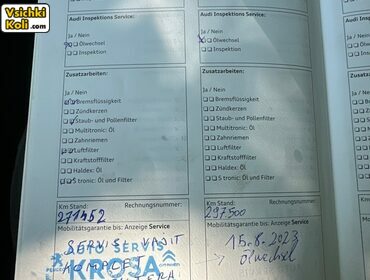 Vsichki
Koli.com
Ja / Nein
Ölwechsel
Inspektion
Zusatzarbeiten:
Ja / Nein
Bremsflüssigkeit
Zündkerzen
Staub- und Pollenfilter
Multitronic: Öl
Zahnriemen
Luftfilter
Kraftstofffilter
Haldex: Öl
S tronic: Öl und Filter
Km Stand: Rechnungsnummer:
271452
Mobilitätsgarantie bis: Anzeige Service
AUTO SERVIZ
KROSA
Audi Inspektions Service:
Ja / Nein
x Ölwechsel
Inspektion
Zusatzarbeiten:
Ja / Nein
Bremsflüssigkeit
Zündkerzen
Staub- und Pollenfilter
Multitronic: Öl
Zahnriemen
Luftfilter
Kraftstofffilter
Haldex: Öl
S tronic: Öl und Filter
Km Stand: Rechnungsnummer:
297500
Mobilitätsgarantie bis: Anzeige Service
15.8.2023
→ Ölwechsel